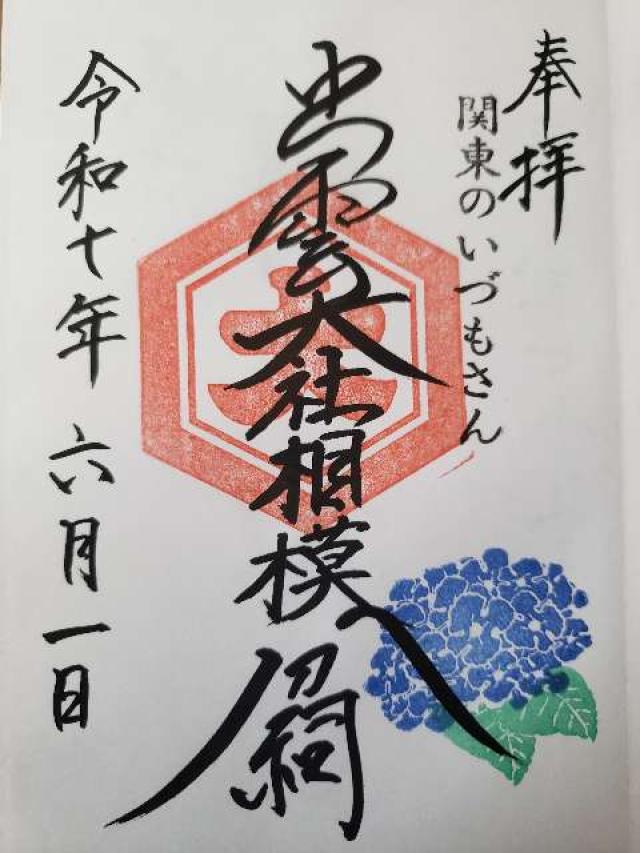 奉拝
関東のいづもさん
出雲大社相模分祠
令和十年六月一日